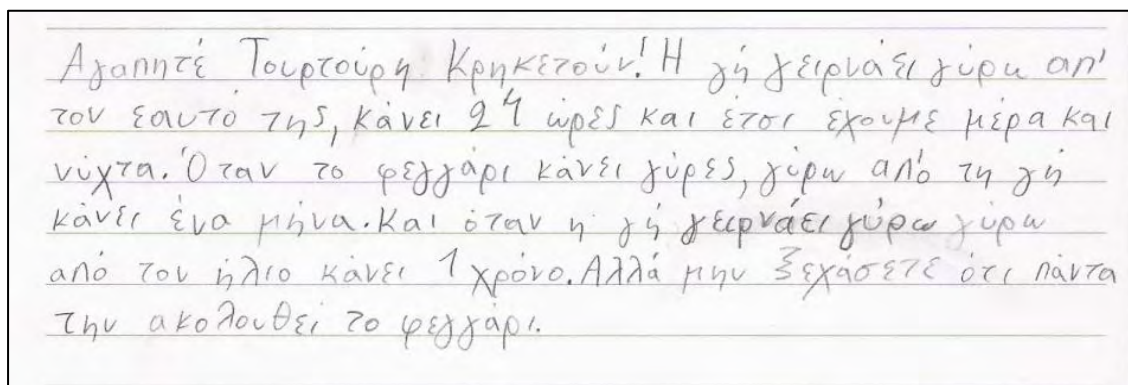 Αγαπητέ Τουρτούρη Κρηκετούν! Η γή γειρνάει γύρω απ'
τον εαυτό της, κάνει 24 ώρες και έτσι έχουμε μέρα και
νύχτα. Όταν το φεγγάρι κάνει γύρες, γύρω από τη γή
κάνει ένα μήνα. Και όταν η γή γειρνάει γύρω γύρω
από τον ήλιο κάνει 1 χρόνο. Αλλά μην ξεχάσετε ότι πάντα
την ακολουθεί το φεγγάρι.